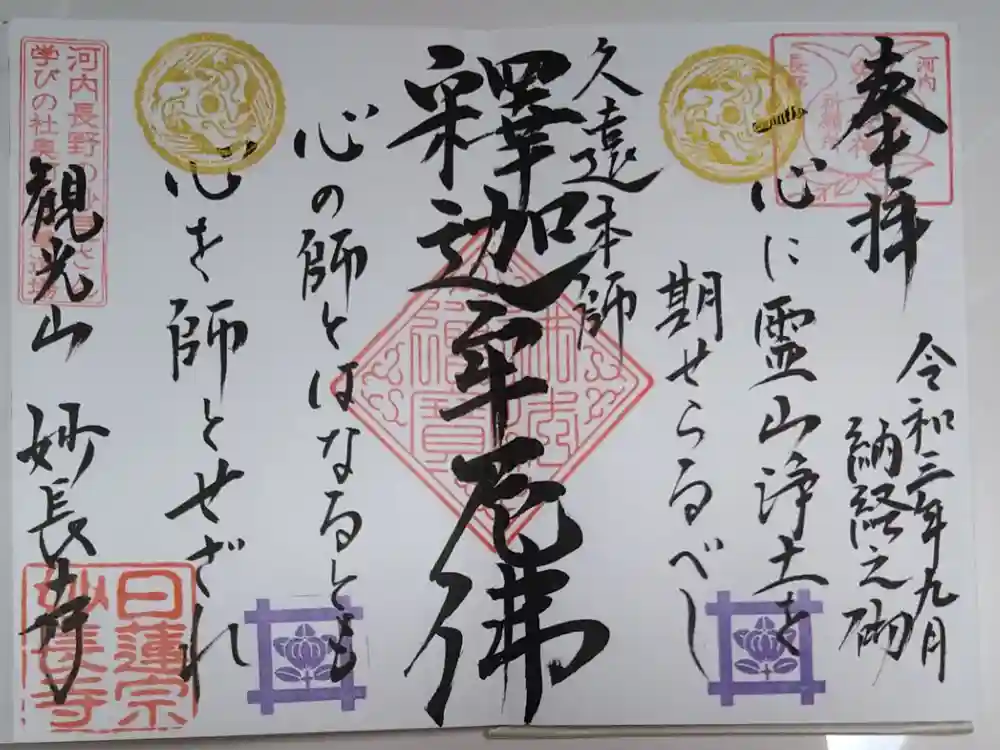 奉拝
令和三年九月
納経之砌
心に霊山浄土を
期せらるべし
久遠本師
釋迦牟尼佛
心の師とはなるとも
心を師とせざれ
観光山 妙長寺
河内
長野
河内長野の
学びの社奥
日蓮宗
妙長寺